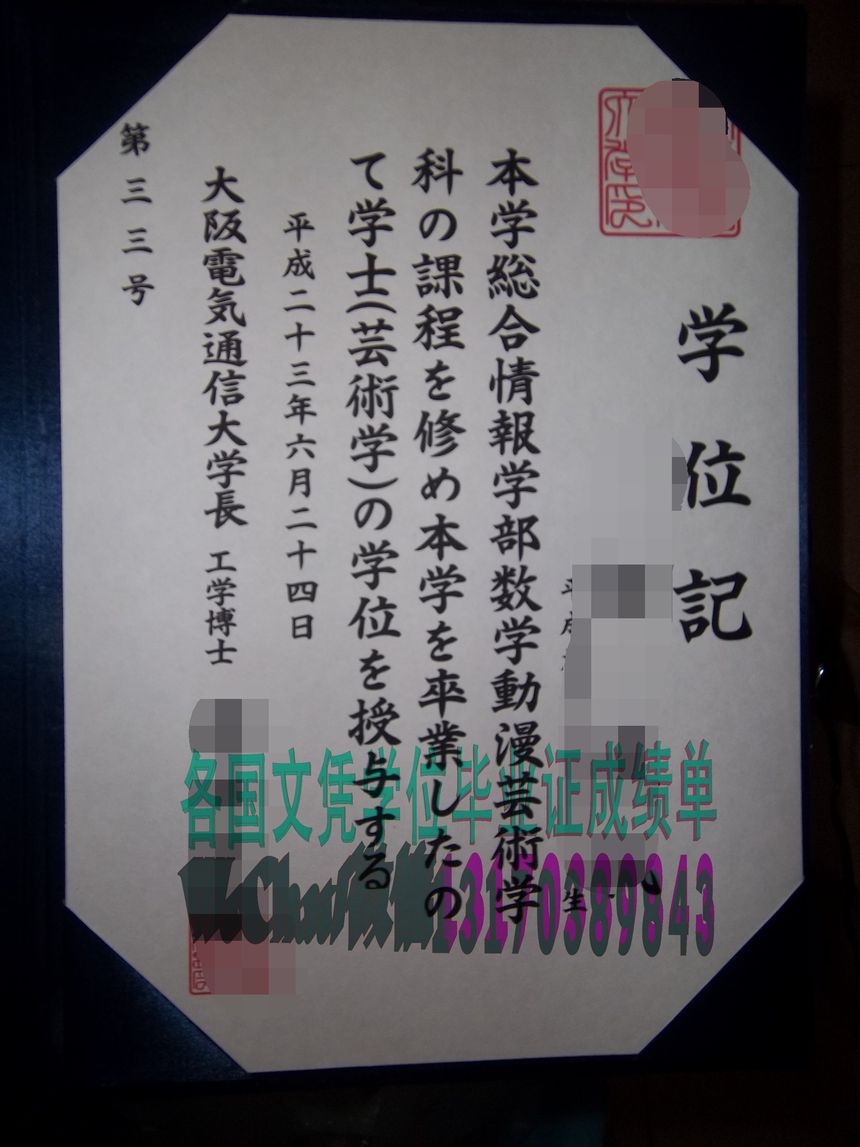 学位記
本学総合情報学部数学動漫芸術学
科の課程を修め本学を卒業したの
て学士(芸術学)の学位を授与する
平成二十三年六月二十四日
大阪電気通信大学長 工学博士
第三三号
各国文凭学位毕业证成绩单
WeChat微信13170389843